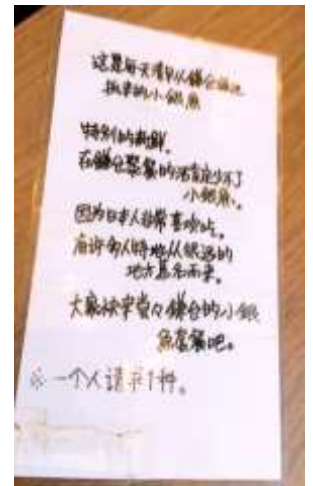 这是每天清早从鎌仓海边
抓来的小银鱼
特别的新鲜。
在鎌仓聚餐的话肯定少不了
小银鱼。
因为日本人非常喜欢吃。
有许多人特地从很远的
地方慕名而来。
大家快来尝々鎌仓的小银
鱼套餐吧。
※ 一个人请 1种。